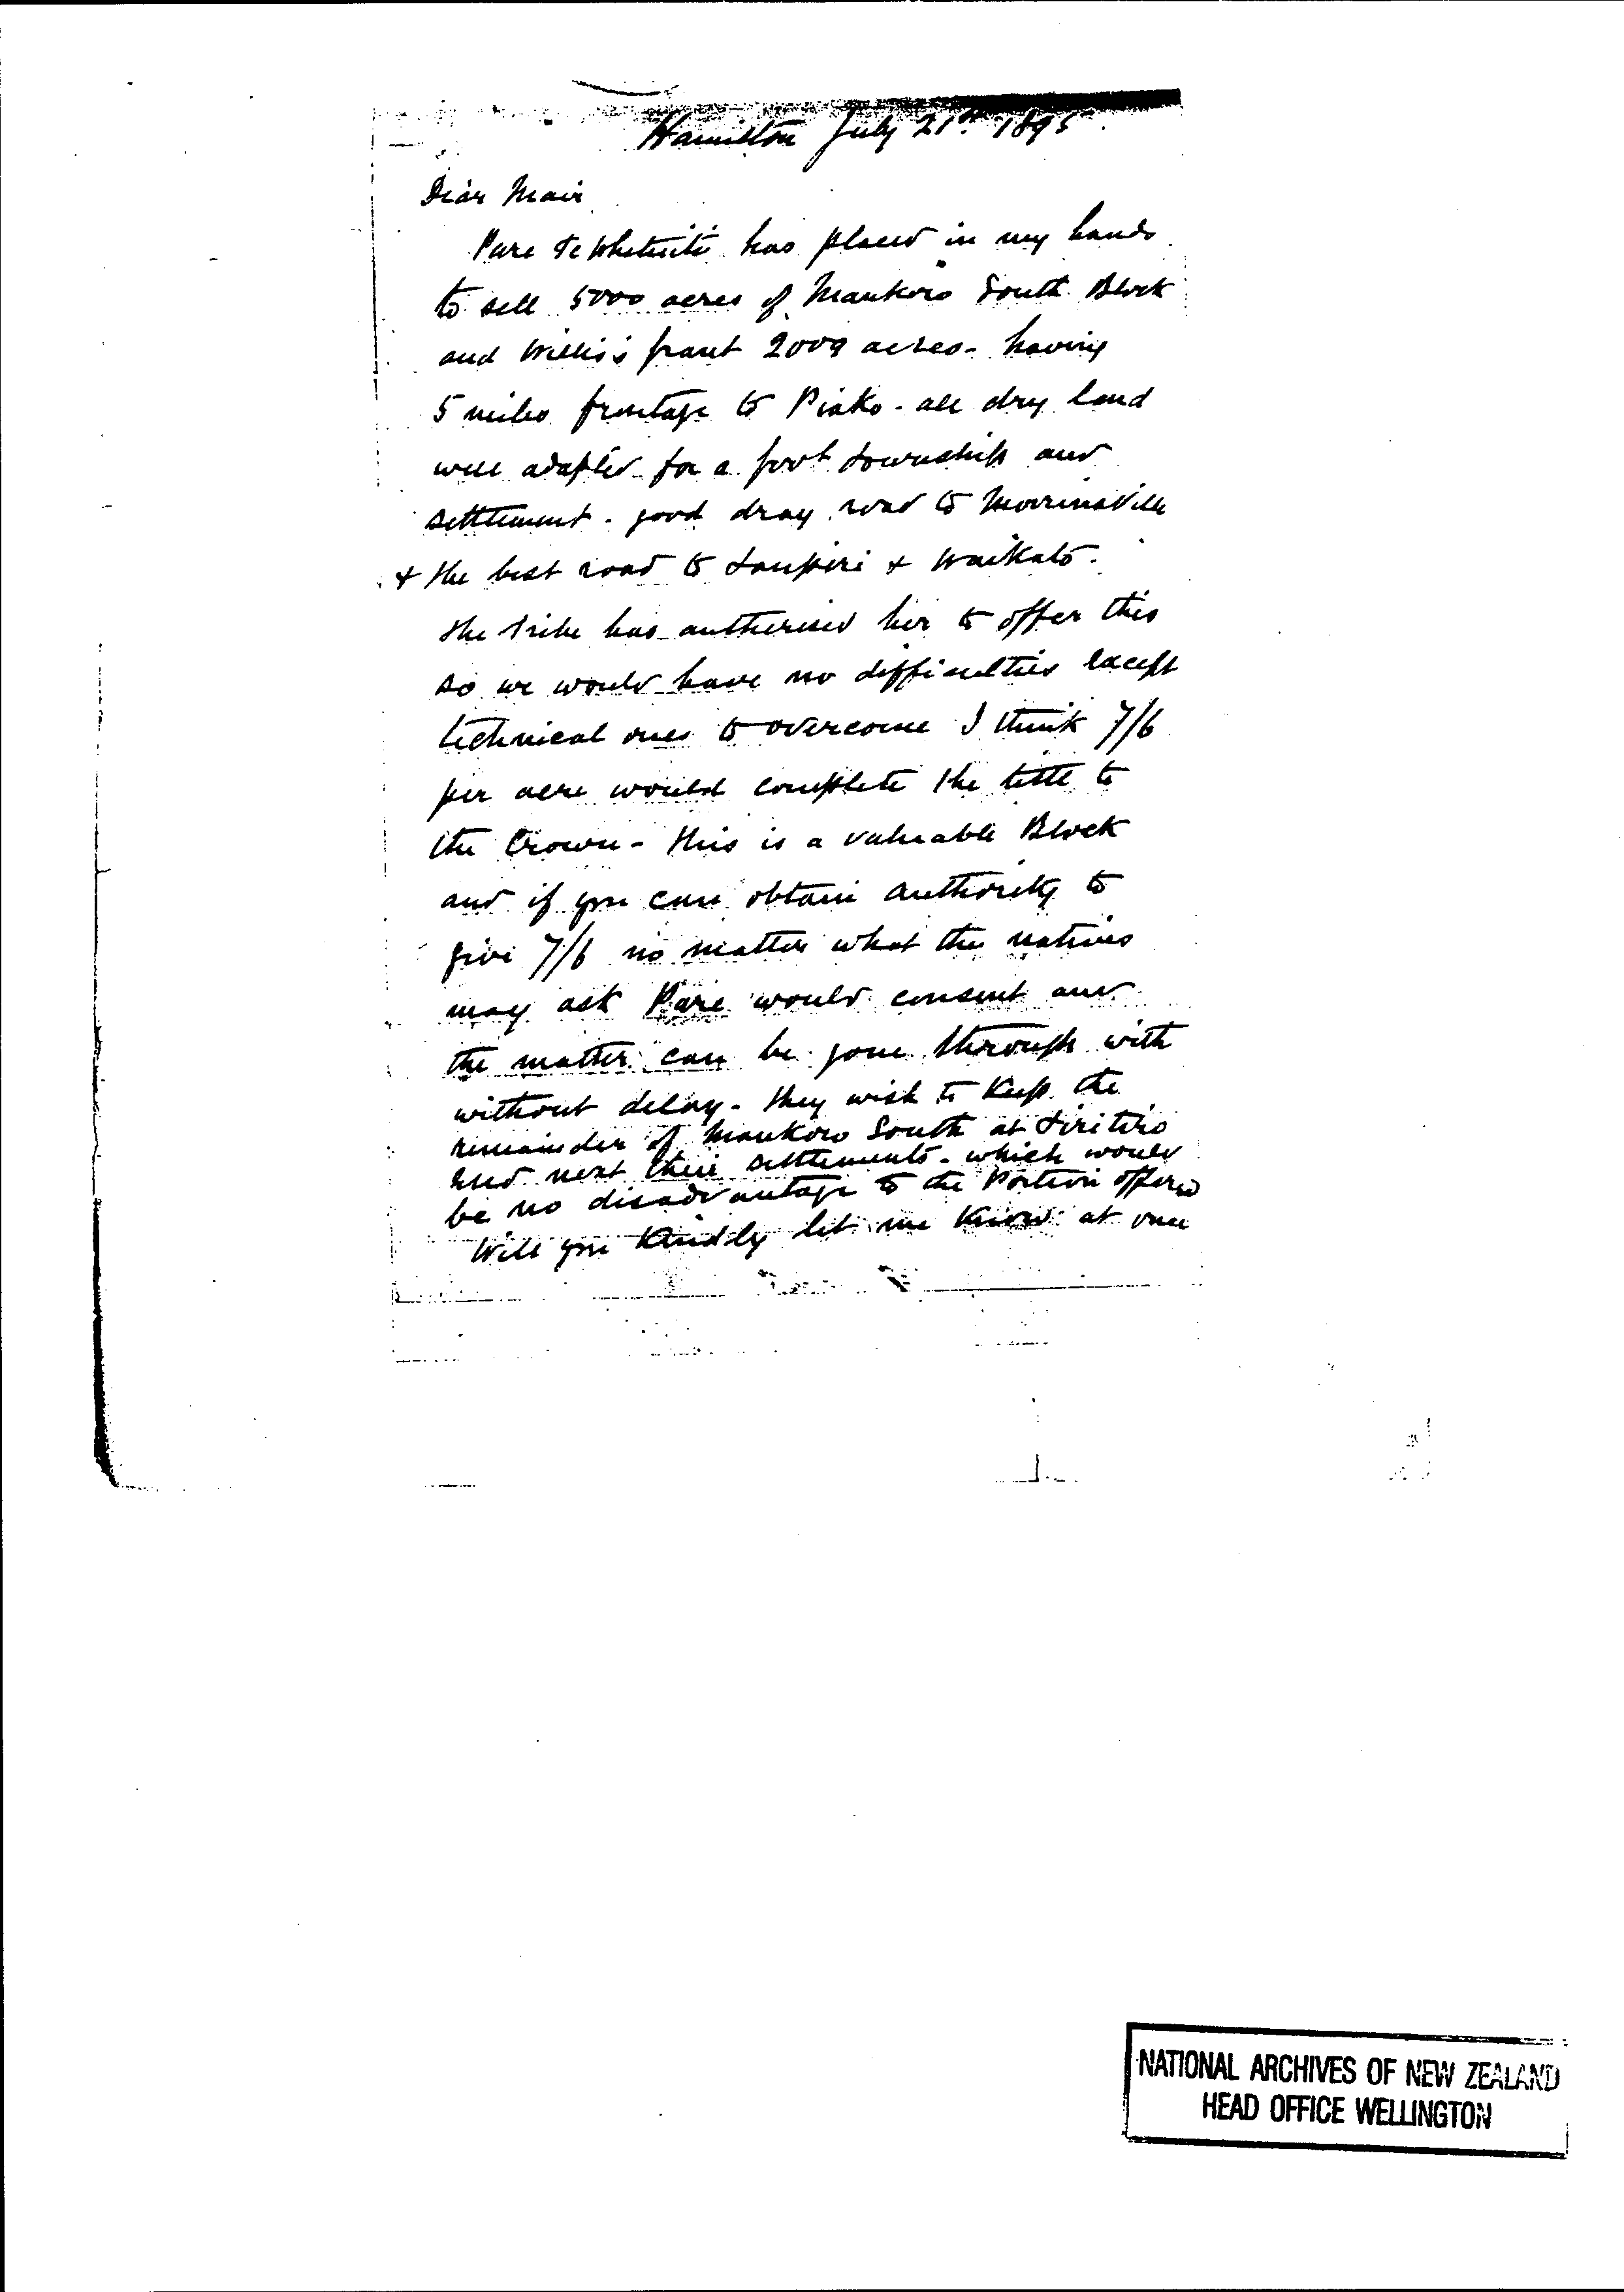 Hamilton July 21st 1895
Dear Mair
Pare Te Whetuiti has placed in my hands
to sell 5000 acres of Maukoro South Block
and Willis's grant 2009 acres - having
5 miles frontage to Piako - all dry land
well adapted for a township and
settlement - good dray road to Morrinsville
& the best road to Taupiri & Waikato -
the tribe has authorised her to offer this
so we would have no difficulties except
technical ones to overcome I think 7/6
per acre would complete the title to
the Crown - this is a valuable Block
and if you can obtain authority to
give 7/6 no matter what the natives
may ask Pare would consent and
the matter can be gone through with
without delay - they wish to keep the
remainder of Maukoro South at Tiritiro
end next their settlements - which would
be no disadvantage to the Portion offered
Will you kindly let me know at once
NATIONAL ARCHIVES OF NEW ZEALAND
HEAD OFFICE WELLINGTON